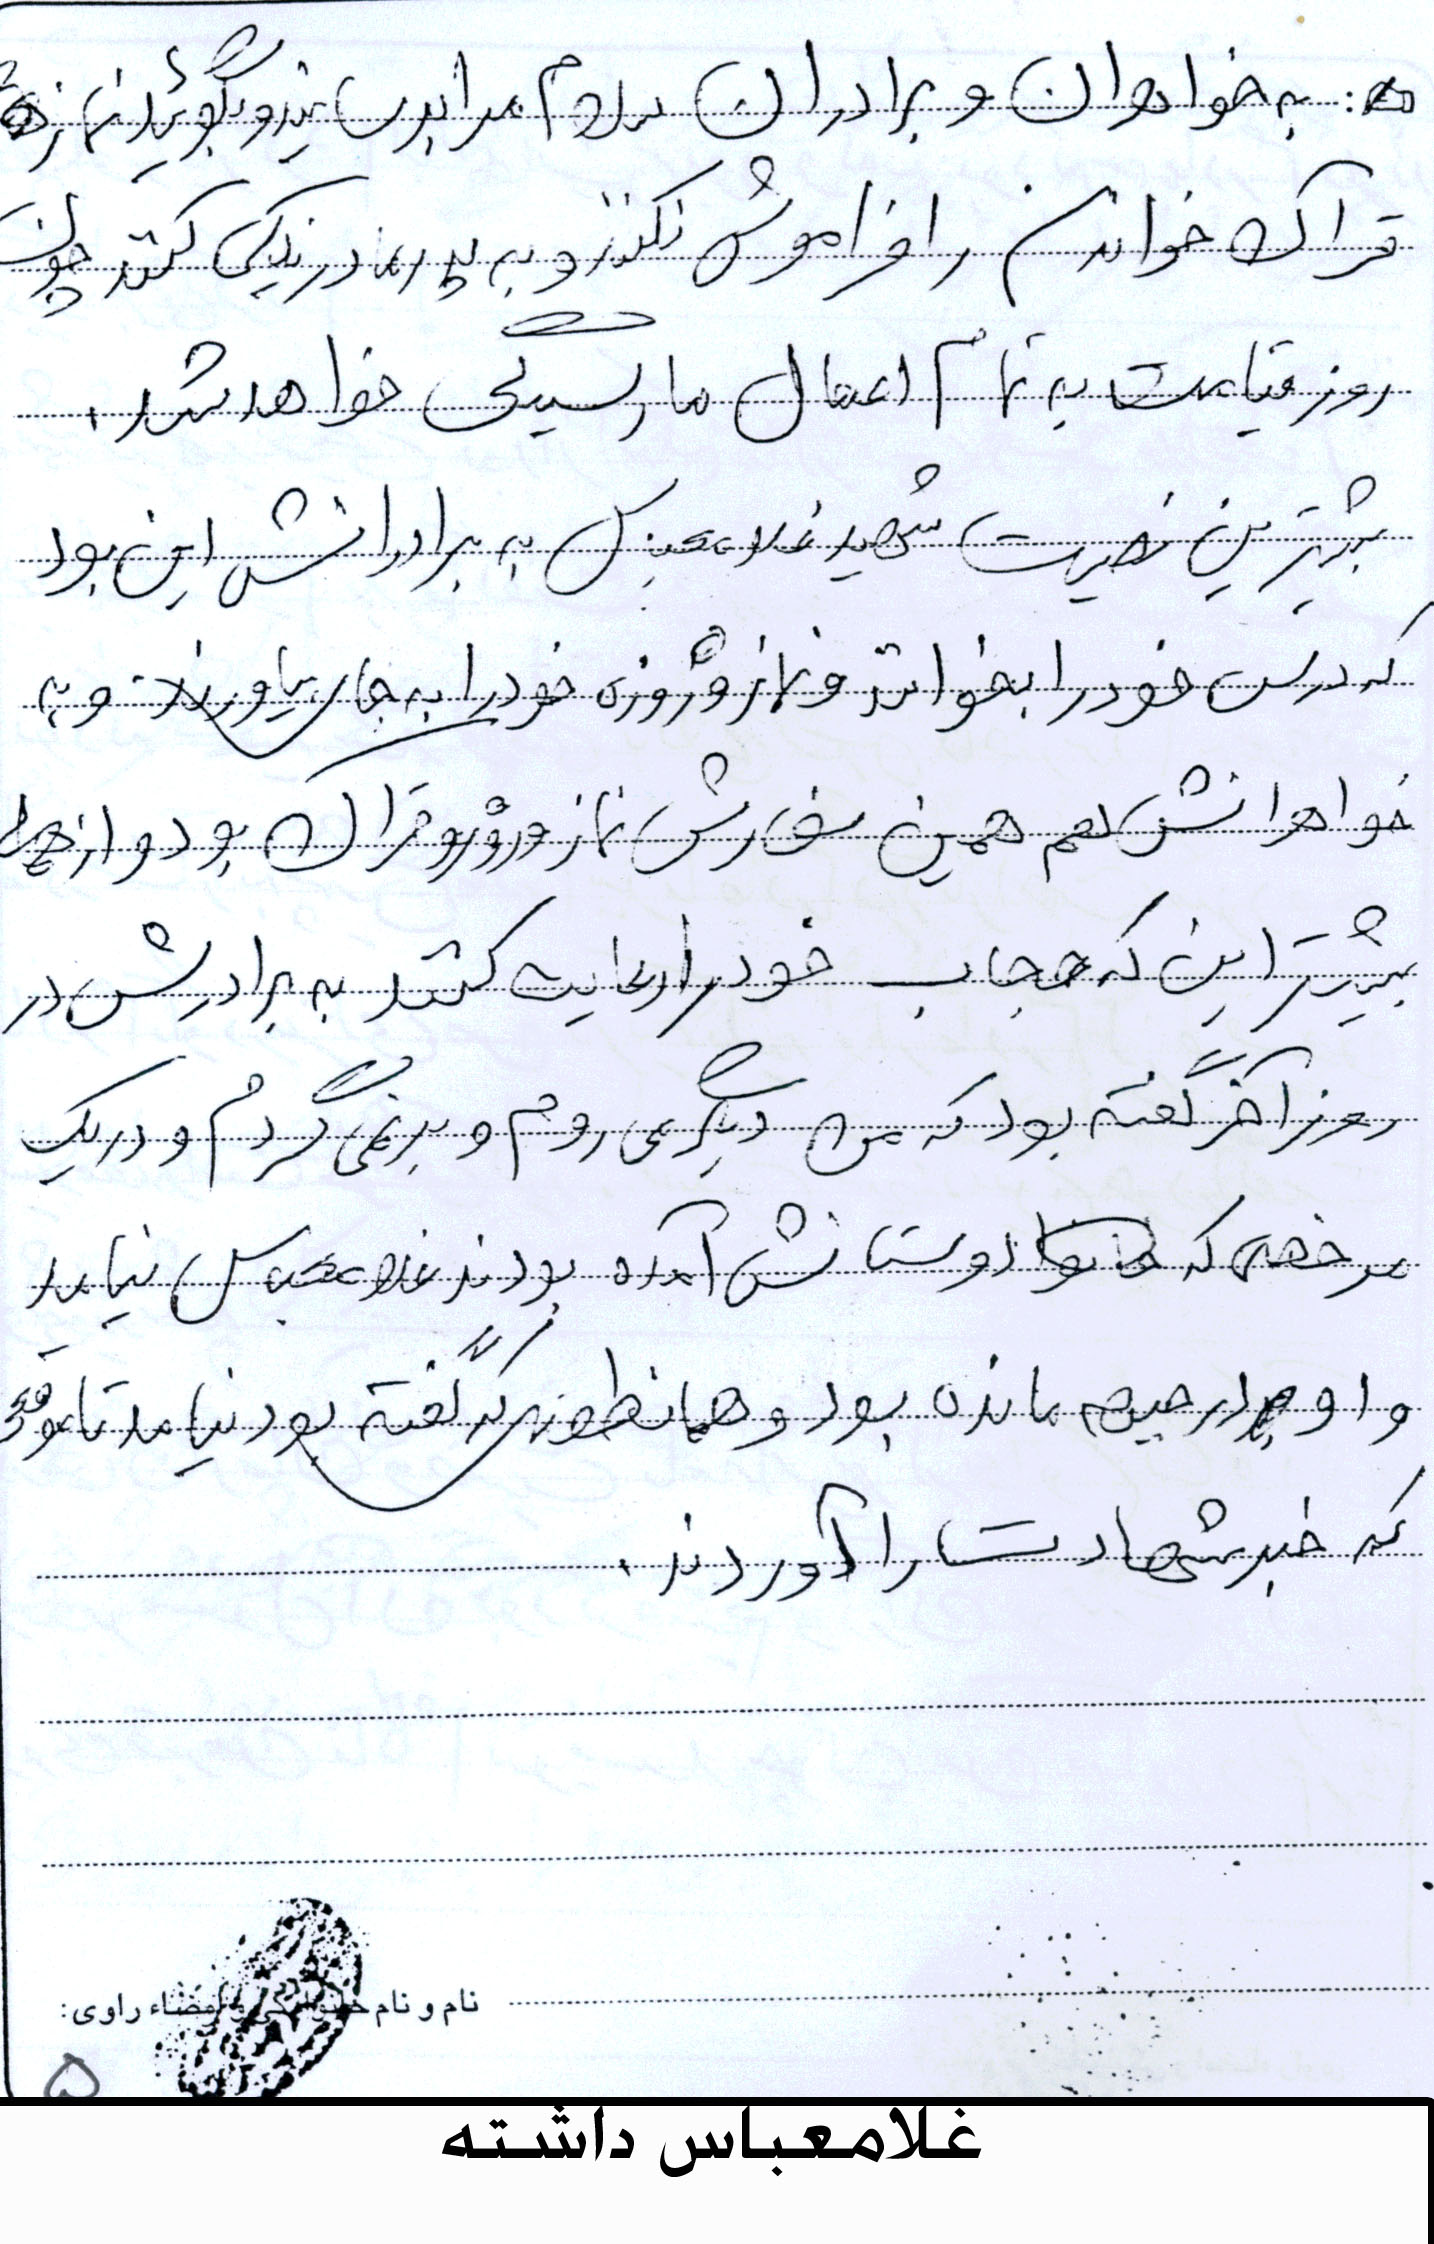 : به خواهران و برادران سلام مرا برسانید و بگوئید نماز
قرآن خواندن را فراموش نکنند و به پدر مادر نیکی کنند چون
روز قیامت به تمام اعمال ما رسیدگی خواهد شد.
بیشترین نصیحت شهید غلامعباس به برادرانش این بود
که درس خود را بخوانند و نماز و روزه خود را به جای بیاورند و به
خواهرانش هم همین سفارش نماز و روزه و قرآن بود و از همه
بیشتر این که حجاب خود را رعایت کنند به برادرش در
روز آخر گفته بود که من دیگر می روم و برنمی گردم و در یک
مرخصی که دوستانش آمده بودند غلامعباس نیامد
و او در جبهه مانده بود و همانطوری که گفته بود نیامد تا موقعی
که خبر شهادت را آوردند.
نام و نام خانوادگی و امضاء راوی:
۵
غلامعباس داشته